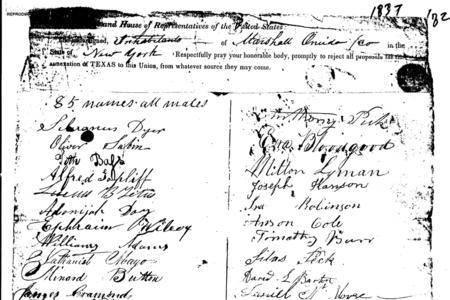 1837
132
and House of Representatives of the United States:
Inhabitants of Marshall Oneida Co in the
State of New York Respectfully pray your honorable body, promptly to reject all proposals for the
annexation of TEXAS to this Union, from whatever source they may come.
85 names all males
Silvanus Dyer
Oliver Sabin
Alfred
Adonijah Day
Ephraim Wilcoy
William Adams
Nathaniel Mayo
Minard Button
James
Anthony Peck
Bloodgood
Milton Lyman
Joseph Hanson
Ira Robinson
Anson Cole
Timothy Burr
Silas Peck
David L Barton